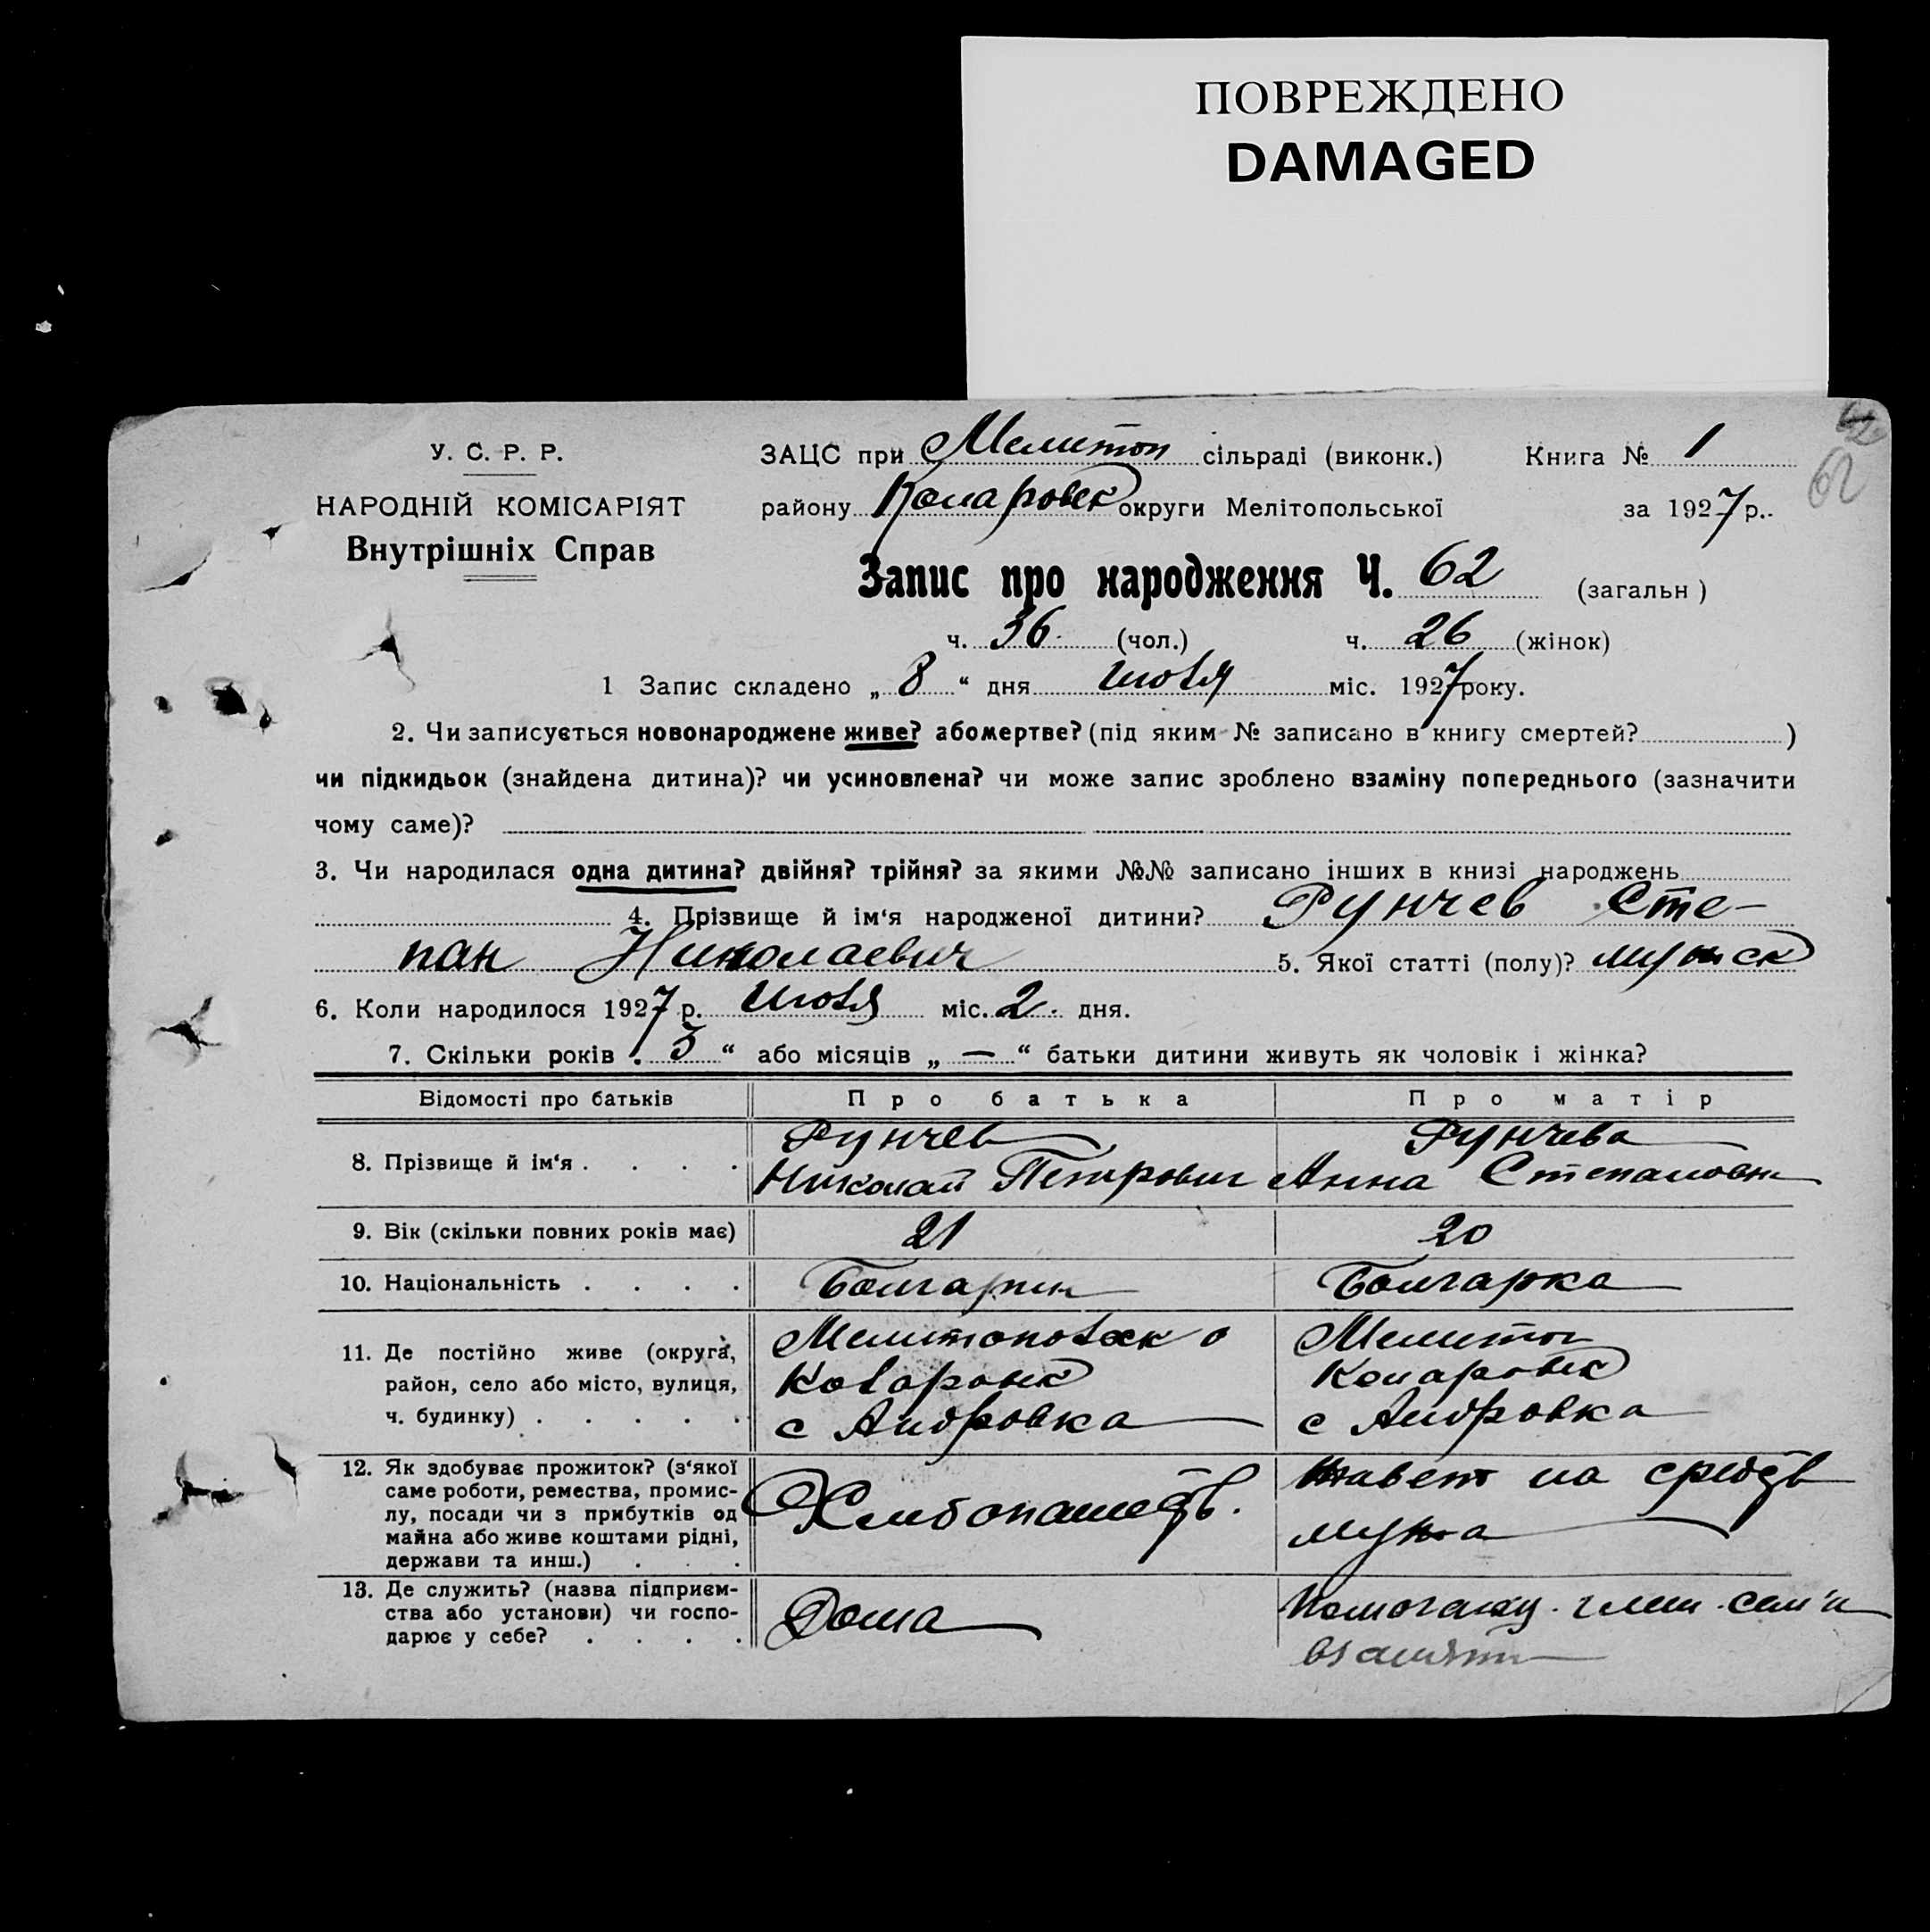 ПОВРЕЖДЕНО
DAMAGED
62
У. С. Р. Р.
НАРОДНІЙ КОМІСАРІЯТ
Внутрішніх Справ
ЗАЦС при Мелитоп сільраді (виконк.) Книга № 1
району Коларовск округи Мелітопольської за 1927 р..
Запис про народження Ч. 62 (загальн)
ч. 36 (чол.) ч. 26 (жінок)
1 Запис складено „ 8 “ дня июля міс. 1927 року.
2. Чи записується новонароджене живе? або мертве? (під яким № записано в книгу смертей? )
чи підкидьок (знайдена дитина)? чи усиновлена? чи може запис зроблено взаміну попереднього (зазначити
чому саме)?
3. Чи народилася одна дитина? двійня? трійня? за якими №№ записано інших в книзі народжень
4. Прізвище й ім‘я народженої дитини? Рунчев Сте-
пан Николаевич 5. Якої статті (полу)? мужск
6. Коли народилося 1927 р. июля міс. 2. дня.
7. Скільки років „ 3 “ або місяців „ — “ батьки дитини живуть як чоловік і жінка?
Відомості про батьків Про батька Про матір
8. Прізвище й ім‘я . . . .
Рунчев
Николай Петрович
Рунчева
Анна Степановна
9. Вік (скільки повних років має) 21 20
10. Національність . . . . Болгарин Болгарка
11. Де постійно живе (округа,
район, село або місто, вулиця,
ч. будинку) . . . . .
Мелитопольск о
Коларовск
с Андровка
Мелитоп
Коларовск
с Андровка
12. Як здобуває прожиток? (з‘якої
саме роботи, ремества, промис-
лу, посади чи з прибутків од
майна або живе коштами рідні,
держави та инш.) . . .
Хлебопашеств.
Живет на средств
мужа
13. Де служить? (назва підприєм-
ства або установи) чи госпо-
дарює у себе? . . . .
Дома
Помогающ. член. сем'и